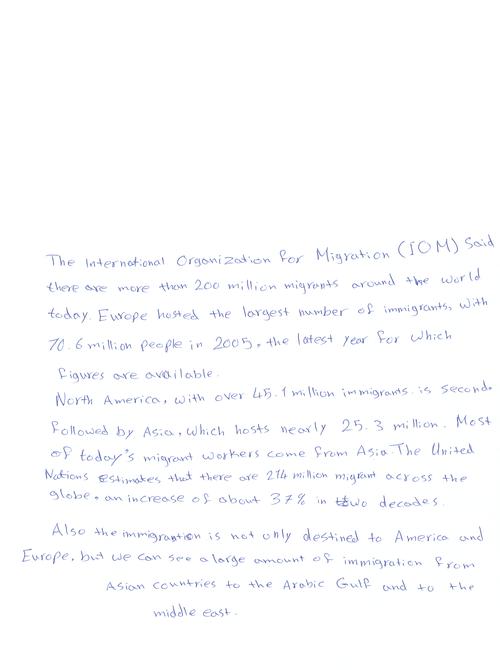 The International Organization for Migration (IOM) Said
there are more than 200 million migrants around the world
today. Europe hosted the largest number of immigrants, with
70.6 million people in 2005, the latest year for which
figures are available.
North America, with over 45.1 million immigrants. is second,
followed by Asia, which hosts nearly 25.3 million. Most
of today's migrant workers come from Asia. The United
Nations estimates that there are 214 million migrant across the
globe, an increase of about 37% in two decades.
Also the immigrantion is not only destined to America and
Europe, but we can see a large amount of immigration from
Asian countries to the Arabic Gulf and to the
middle east.